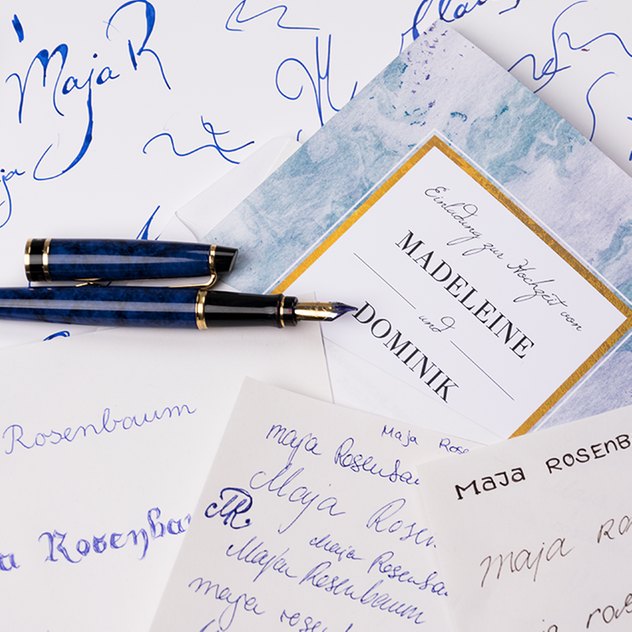 Maja R
Einladung zur Hochzeit von
MADELEINE
und
DOMINIK
Rosenbaum
a Rosenba
maja Rosenba
Maja Rose
Maja Rosen
MR.
Maja Rosenba
Maja Rosenbaum
maja rosen
MaJa ROSENB
maja Ro
rose